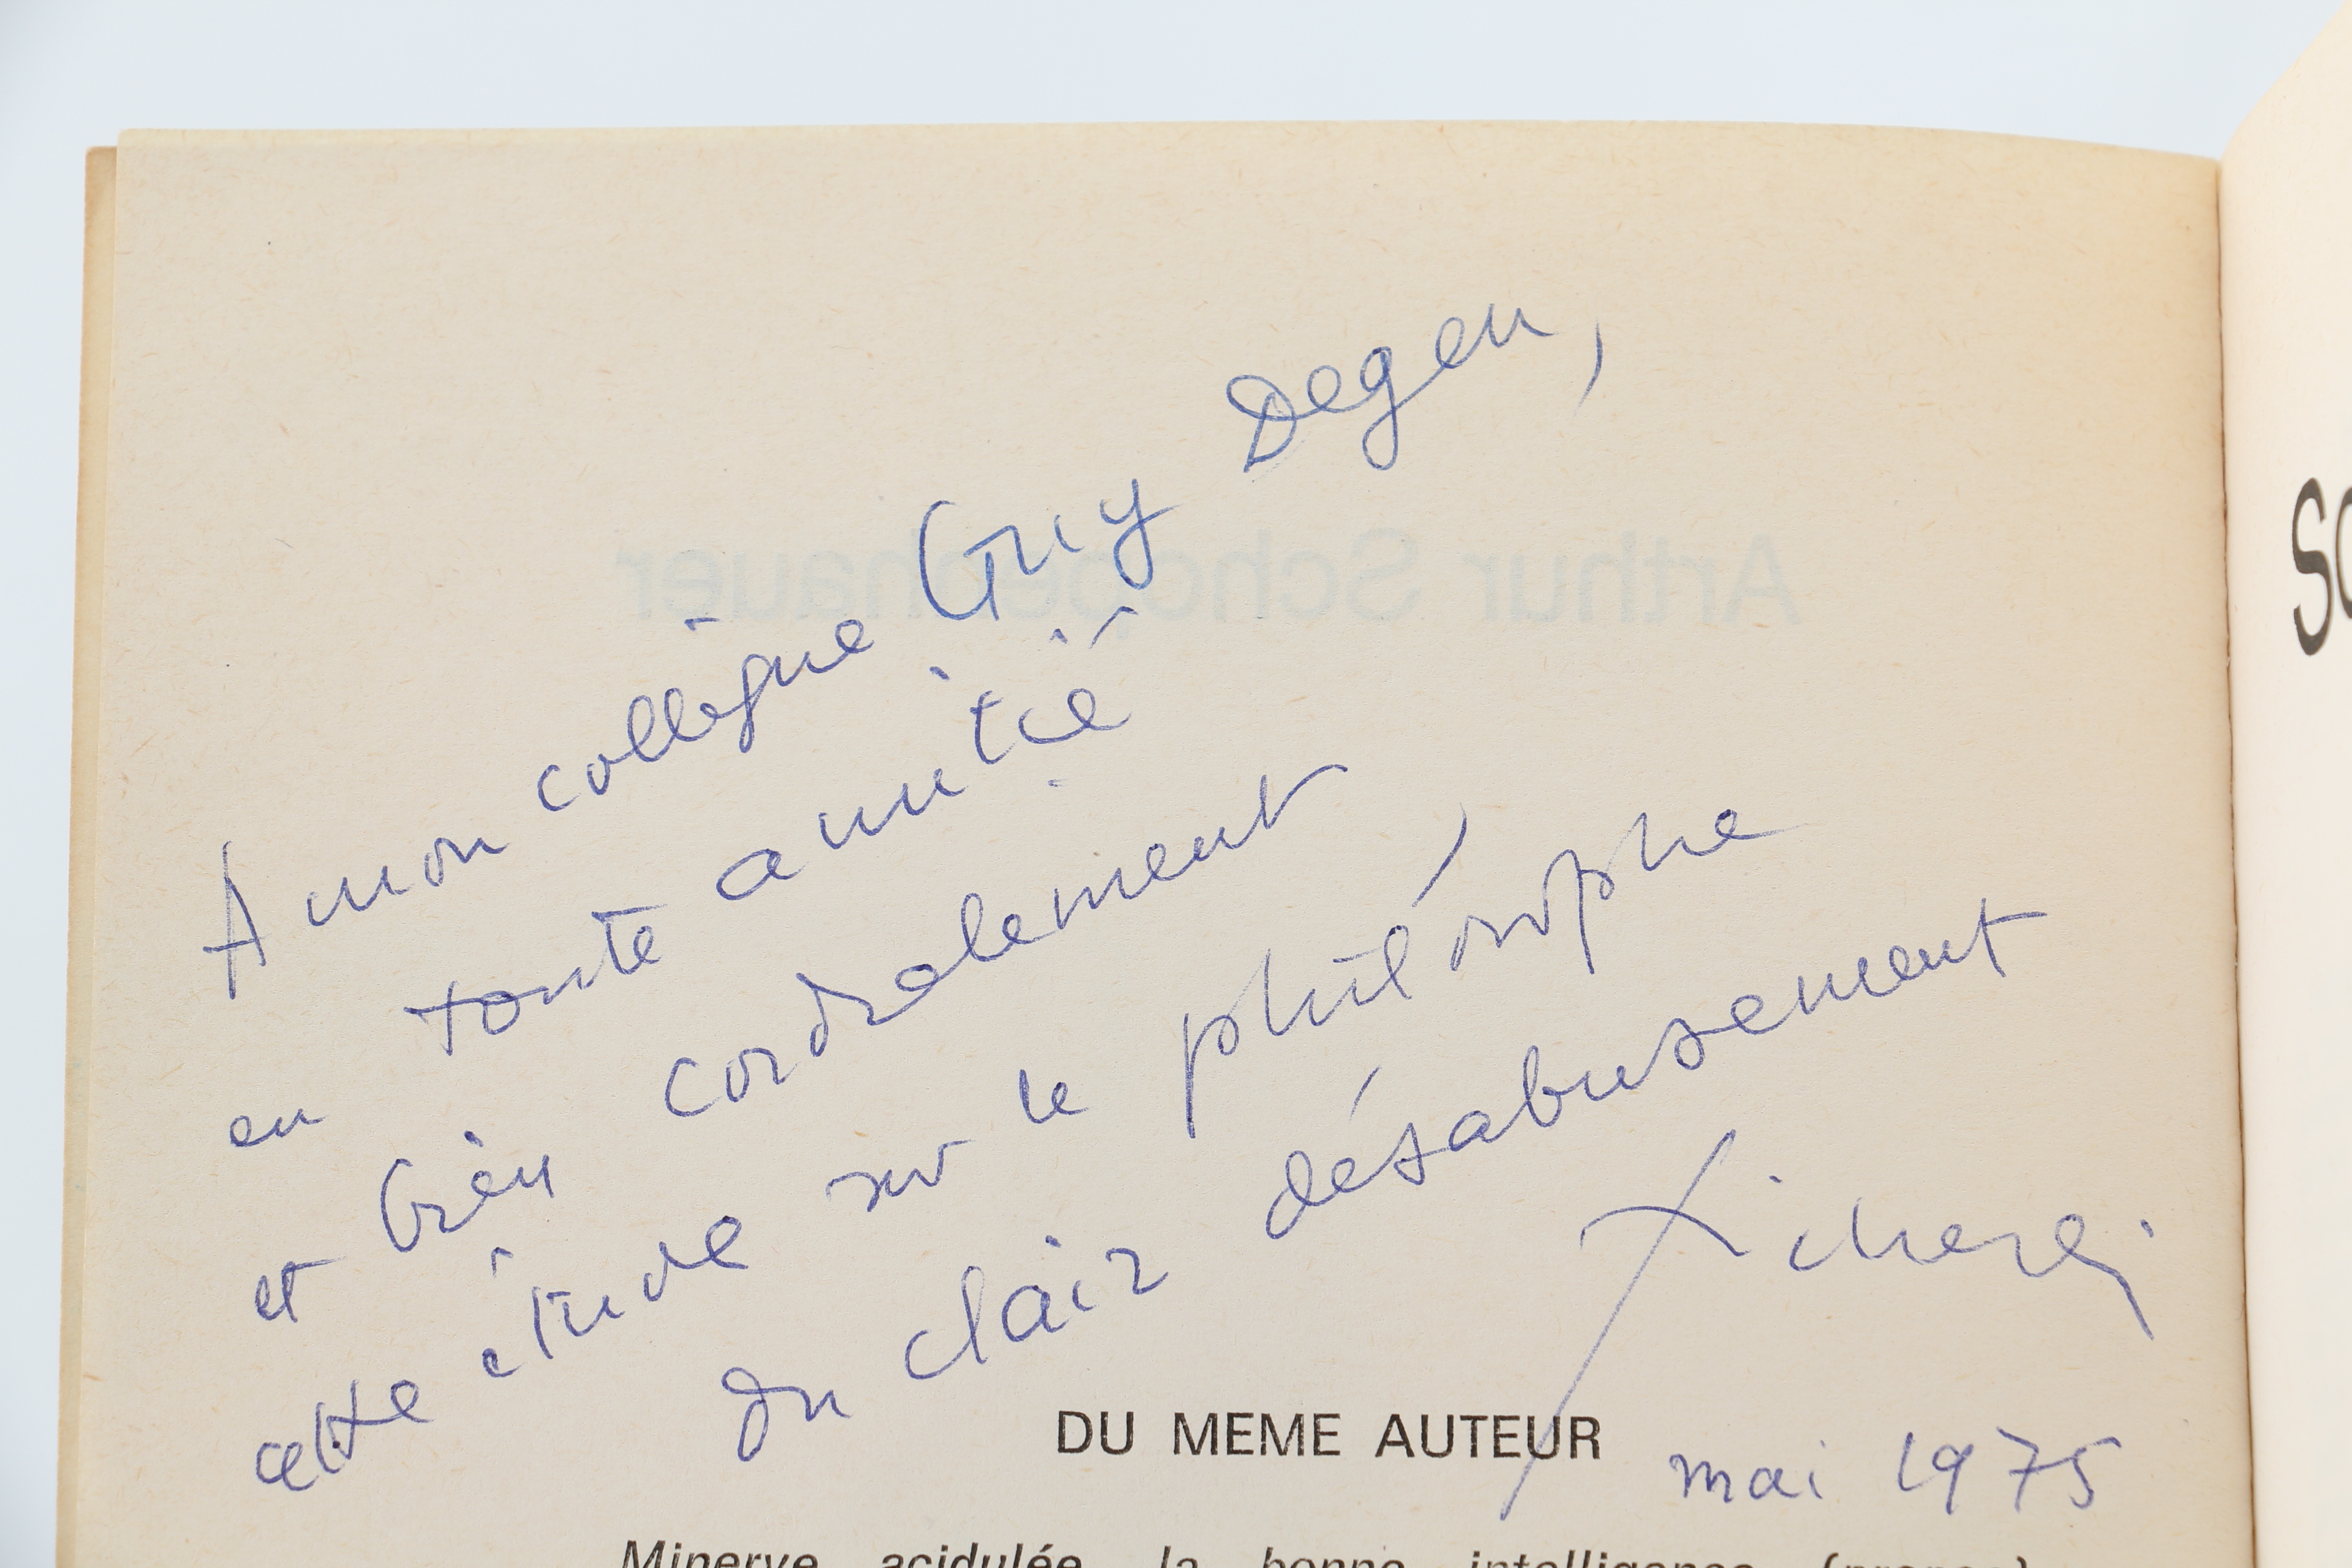 A mon collègue Guy Degen,
en toute amitié
et bien cordialement,
cette étude sur le philosophe
du clair désabusement
mai 1975
Arthur Schopenhauer
DU MEME AUTEUR
Minerve acidulée, la bonne intelligence (propos)